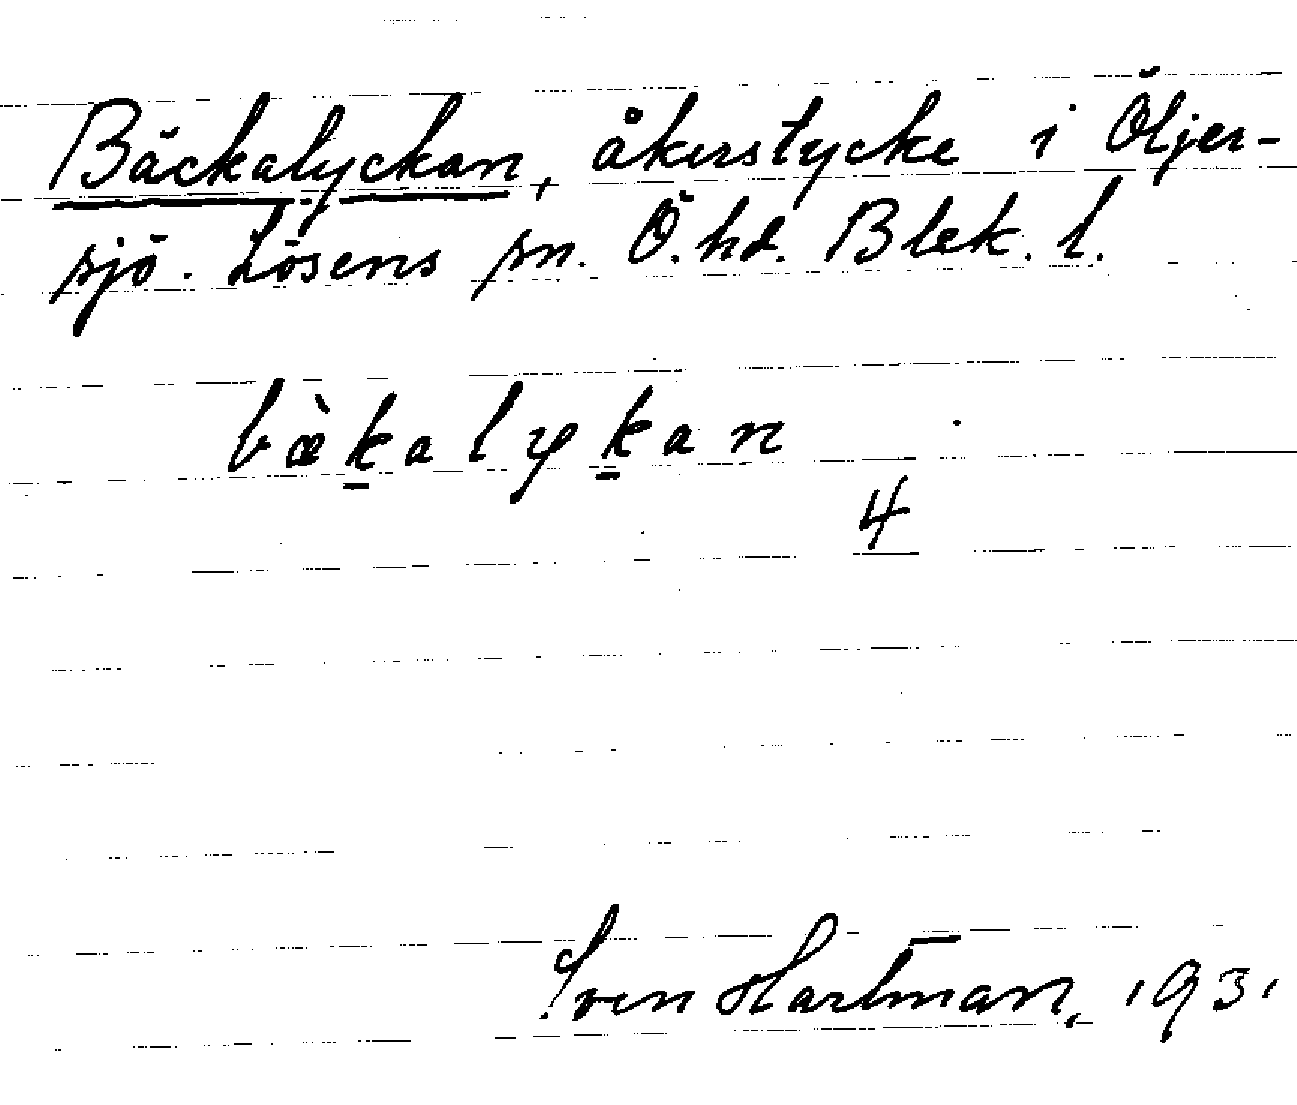 Bäckalyckan, åkerstycke i Öljer-
sjö. Lösens sn. Ö. hd. Blek. l.
bæ̀ḵalyḵan
4
Sven Hartman, 1931